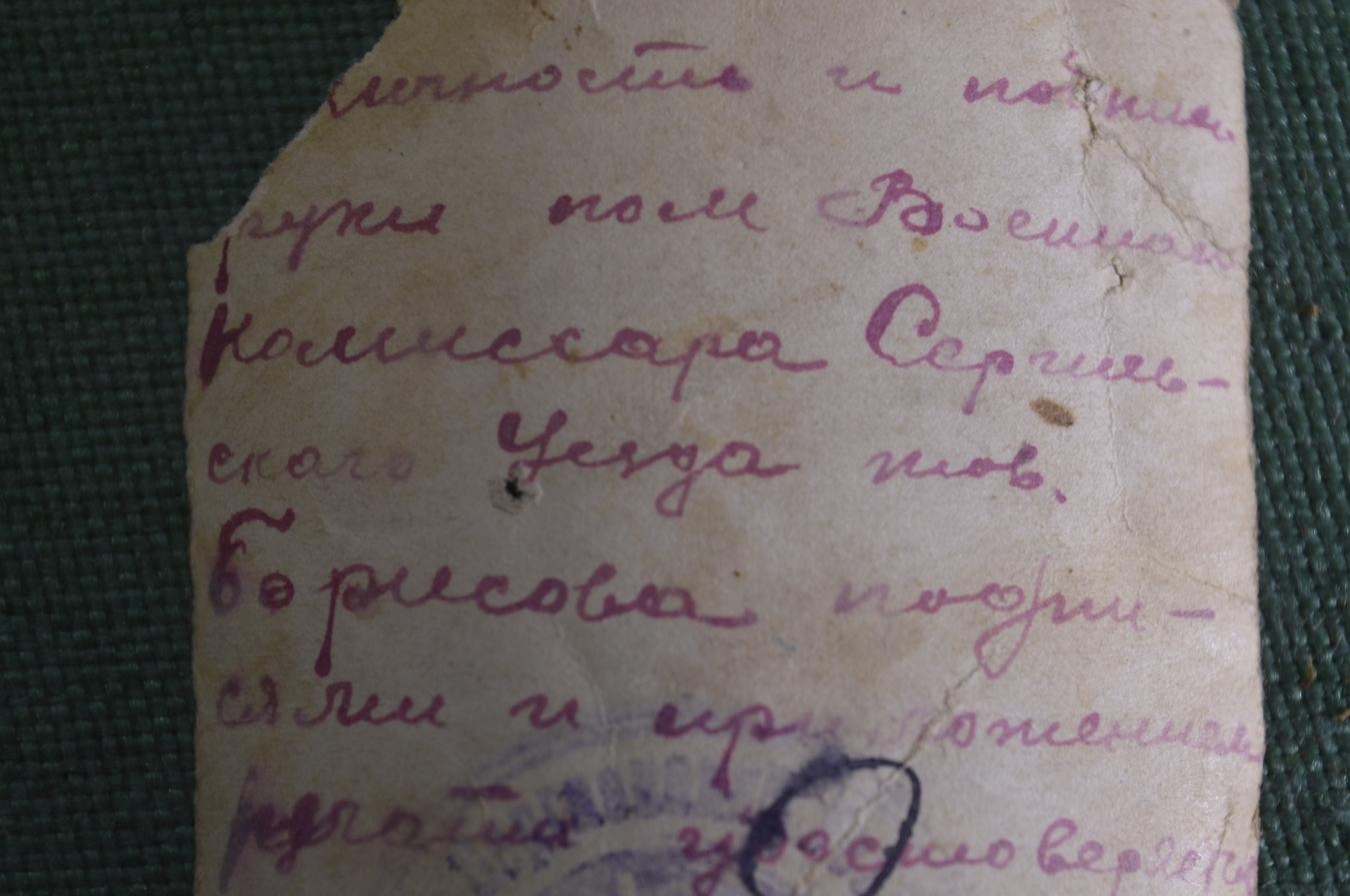 личность и подпись
руки пом Военного
Комиссара Сергиев-
ского Уезда тов.
Борисова подпи-
сями и приложением
печати удостоверяется